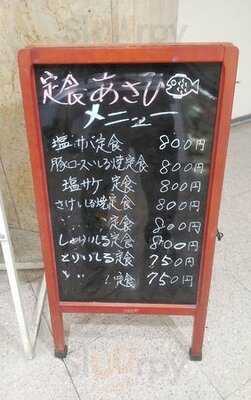 定食あさひ
メニュー
塩サバ定食 800円
豚ロースいしる焼定食 800円
塩サケ 定食 800円
さけいしる焼定食 800円
定食 800円
いしる定食 800円
とりいしる定食 750円
定食 750円